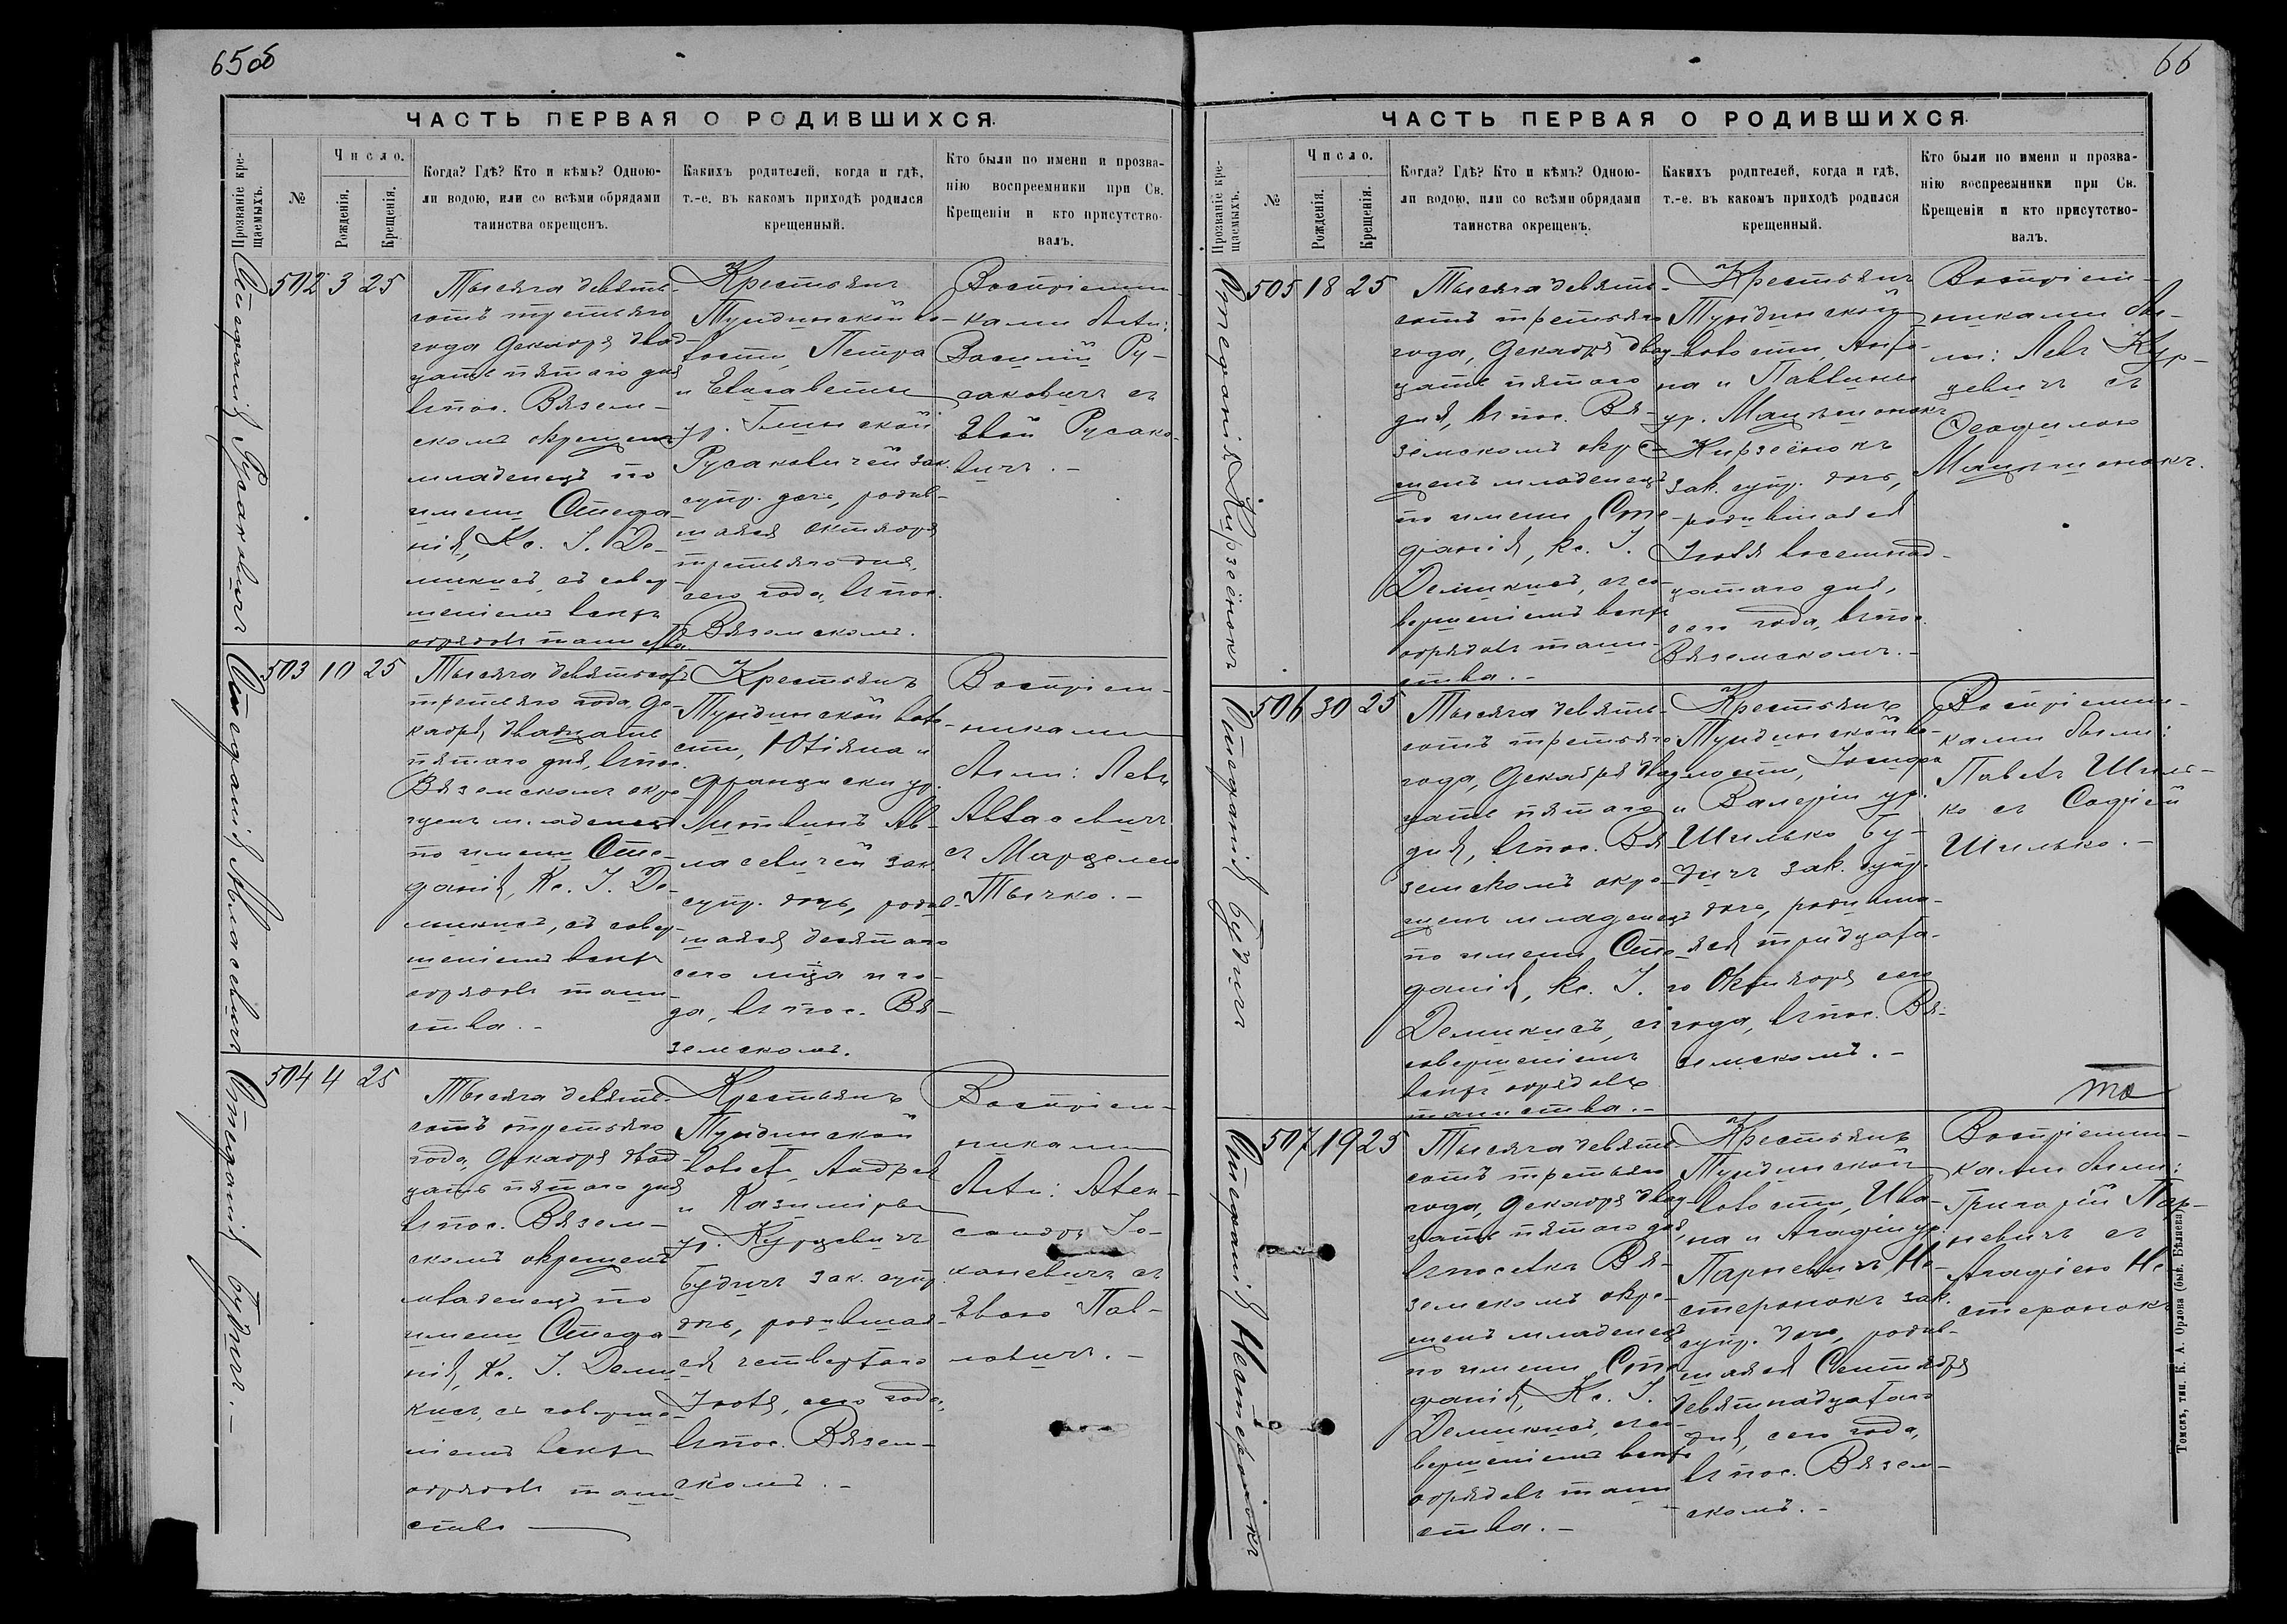 65об
ЧАСТЬ ПЕРВАЯ О РОДИВШИХСЯ.
Прозваніе кре-
щаемыхъ.
№
Число.
Рожденія.
Крещенія.
Когда? Гдѣ? Кто и кѣмъ? Одною-
ли водою, или со всѣми обрядами
таинства окрещенъ.
Какихъ родителей, когда и гдѣ,
т.-е. въ какомъ приходѣ родился
крещенный.
Кто были по имени и прозва-
нію воспреемники при Св.
Крещеніи и кто присутство-
валъ.
Стефанія Русаковичъ
502 3 25
Тысяча девять-
сотъ третьяго
года Декабря двад-
цать пятаго дня
въ пос. Вязем-
скомъ окрещенъ
младенецъ по
имени Стефа-
нія, Кс. І. Де-
микисъ, съ совер-
шеніемъ всѣхъ
обрядовъ таинства.
Крестьянъ
Тундинской во-
лости, Петра
и Елисаветы
ур.
Русаковичей зак.
супр. дочь, родив-
шаяся октября
третьяго дня,
сего года, въ пос.
Вяземскомъ.
Воспріемни-
ками были:
Василій Ру-
саковичъ съ
Евой Русако-
вичъ. -
Стефанія Авласевичъ
503 10 25
Тысяча девятьсотъ
третьяго года, Де-
кабря, двадцать
пятаго дня, въ пос.
Вяземскомъ окре-
щенъ младенецъ
по имени Сте-
фанія, Кс. І. Де-
микисъ, съ совер-
шеніемъ всѣхъ
обрядовъ таин-
ства. -
Крестьянъ
Тундинской воло-
сти, Юліяна и
Франциски ур.
Литвинъ Ав-
ласевичей зак.
супр. дочь, родив-
шаяся десятаго
сего м-ца и го-
да, въ пос. Вя-
земскомъ.
Воспріем-
никами
были: Левъ
Авласевичъ
съ Марцелею
Тычко. -
Стефанія Будичъ. -
504 4 25
Тысяча девять-
сотъ третьяго
года, Декабря двад-
цать пятаго дня
въ пос. Вязем-
скомъ окрещенъ
младенецъ по
имени Стефа-
нія, Кс. І. Деми-
кисъ, съ соверше-
ніемъ всѣхъ
обрядовъ таин-
ства
Крестьянъ
Тундинской
волости, Андрея
и Казимиры
ур. Курцевичъ
Будичъ зак. супр.
дочь, родившая-
ся четвертаго
Іюля, сего года,
въ пос. Вязем-
скомъ. -
Воспріем-
никами
были: Алек-
сандръ Ло-
каневичъ съ
Евою Пав-
ловичъ. -
66
ЧАСТЬ ПЕРВАЯ О РОДИВШИХСЯ.
Прозваніе кре-
щаемыхъ.
№
Число.
Рожденія.
Крещенія.
Когда? Гдѣ? Кто и кѣмъ? Одною-
ли водою, или со всѣми обрядами
таинства окрещенъ.
Какихъ родителей, когда и гдѣ,
т.-е. въ какомъ приходѣ родился
крещенный.
Кто были по имени и прозва-
нію воспреемники при Св.
Крещеніи и кто присутство-
валъ.
Стефанія Кирзеёнокъ
505 18 25
Тысяча девять-
сотъ третьяго
года, Декабря двад-
цать пятаго
дня, въ пос. Вя-
земскомъ окре-
щенъ младенецъ
по имени Сте-
фанія, Кс. І.
Демикисъ, съ со-
вершеніемъ всѣхъ
обрядовъ таин-
ства. -
Крестьянъ
Тундинской
волости,
на и Павлины
ур.
Кирзеёнокъ
зак. супр. дочь,
родившаяся
Іюля восемнад-
цатаго дня,
сего года, въ пос.
Вяземскомъ. -
Воспріем-
никами бы-
ли: Левъ Кур-
цевичъ съ
Ѳеофилою
Стефанія Будичъ
506 30 25
Тысяча девять-
сотъ третьяго
года, Декабря двад-
цать пятаго
дня, въ пос. Вя-
земскомъ окре-
щенъ младенецъ
по имени Сте-
фанія, Кс. І.
Демикисъ, съ
совершеніемъ
всѣхъ обрядовъ
таинства. -
Крестьянъ
Тундинской во-
лости, Іосифа
и Валеріи ур.
Шилько Бу-
дичъ зак. супр.
дочь, родивша-
яся тридцата-
го Октября сего
года, въ пос. Вя-
земскомъ. -
Воспріемни-
ками были:
Павелъ Шиль-
ко съ Софіей
Шилько. -
Стефанія Нестерёнокъ
507 19 25
Тысяча девять-
сотъ третьяго
года, Декабря двад-
цать пятаго дня,
въ поселкѣ Вя-
земскомъ окре-
щенъ младенецъ
по имени Сте-
фанія, Кс. І.
Демикисъ, съ со-
вершеніемъ всѣхъ
обрядовъ таин-
ства. -
Крестьянъ
Тундинской
волости, Ива-
на и Агафіи ур.
Парневичъ Не-
стеронокъ зак.
супр. дочь, родив-
шаяся Сентября
девятнадцатаго
дня, сего года,
въ пос. Вязем-
скомъ. -
Воспріемни-
ками были:
Григорій Пар-
невичъ съ
Агафіею Не-
стеронокъ
Томскъ, тип. К. А. Орлова (быв. Бѣляева)